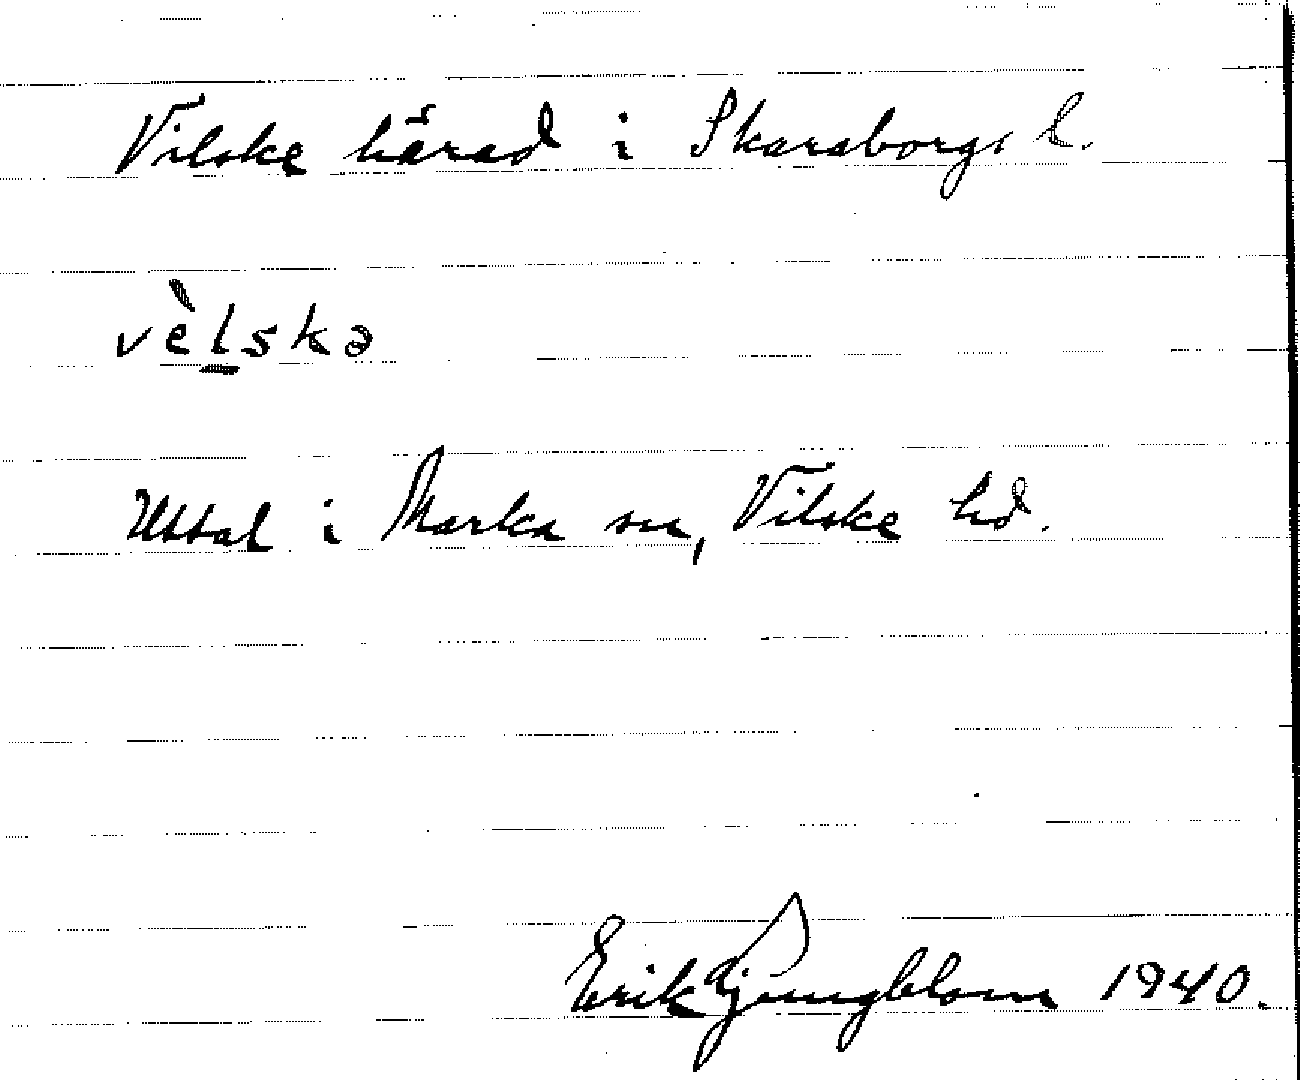 Vilske härad i Skaraborgs l.
vèlskə
Uttal i Marka sn, Vilske hd.
Erik Ljungblom 1940.